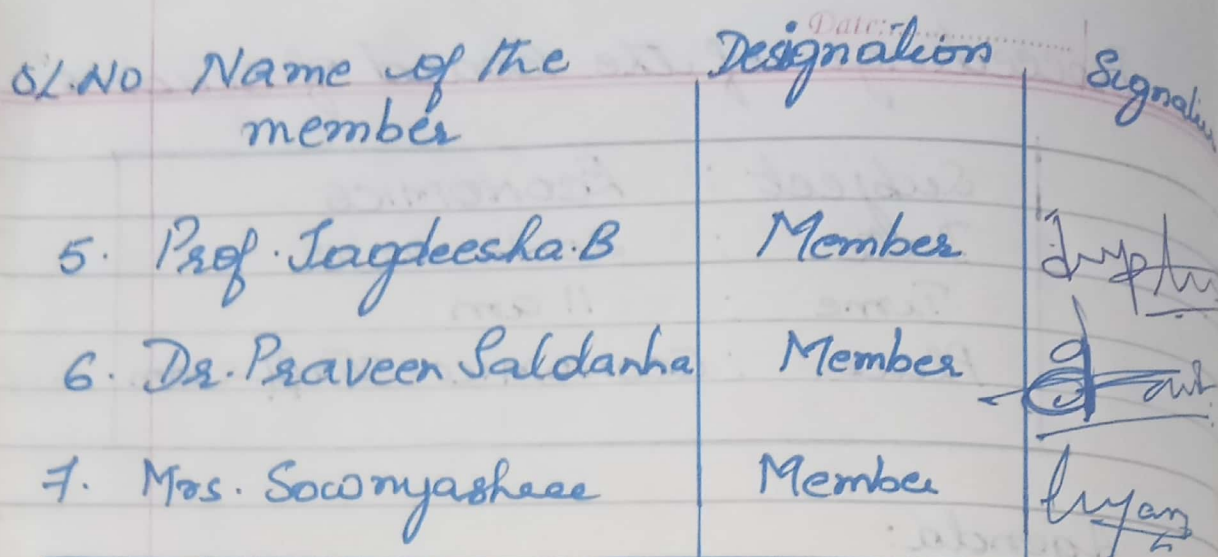 Date:
Sl.No Name of the member Designation Signatu
5. Prof. Jagdeesha.B Member
6. Dr. Praveen Saldanha Member
7. Mrs. Sowmyashree Member